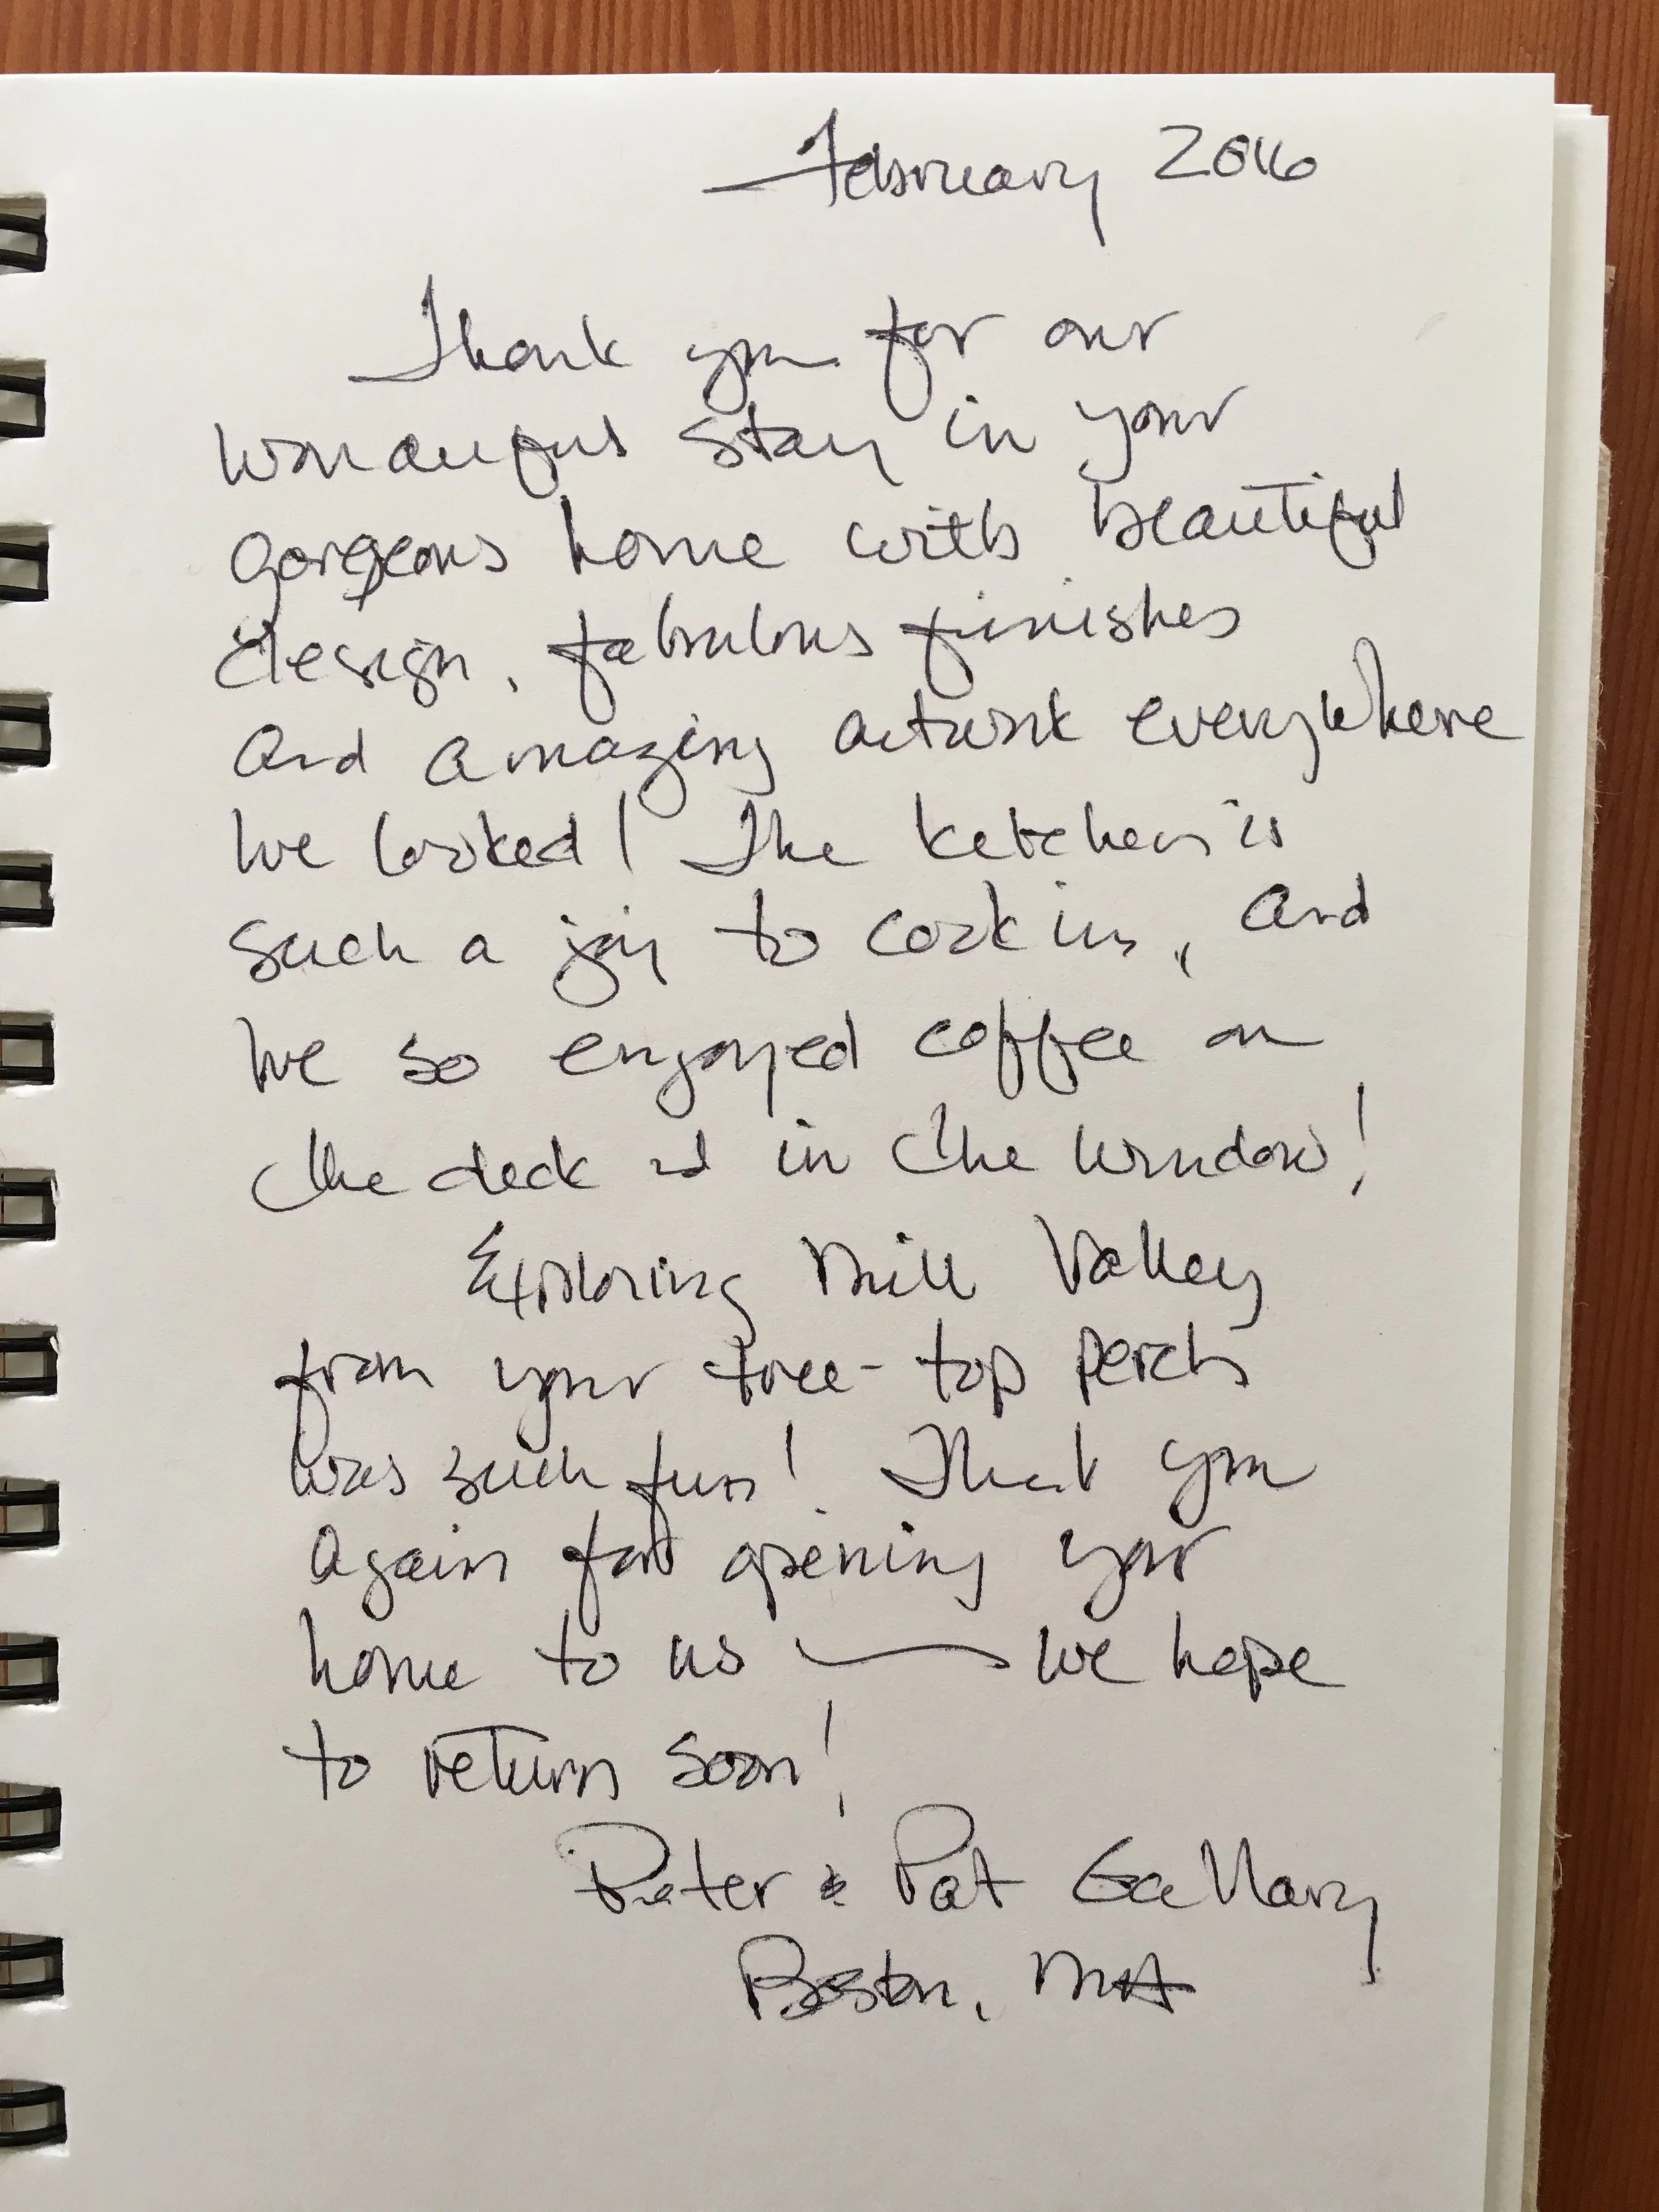 February 2016
Thank you for our
wonderful stay in your
gorgeous home with beautiful
design, fabulous finishes
and amazing artwork everywhere
we looked! The kitchen is
such a joy to cook in, and
we so enjoyed coffee on
the deck and in the window!
Exploring Mill Valley
from your tree-top perch
was such fun! Thank you
again for opening your
home to us — we hope
to return soon!
Peter & Pat Gallary
Boston, MA